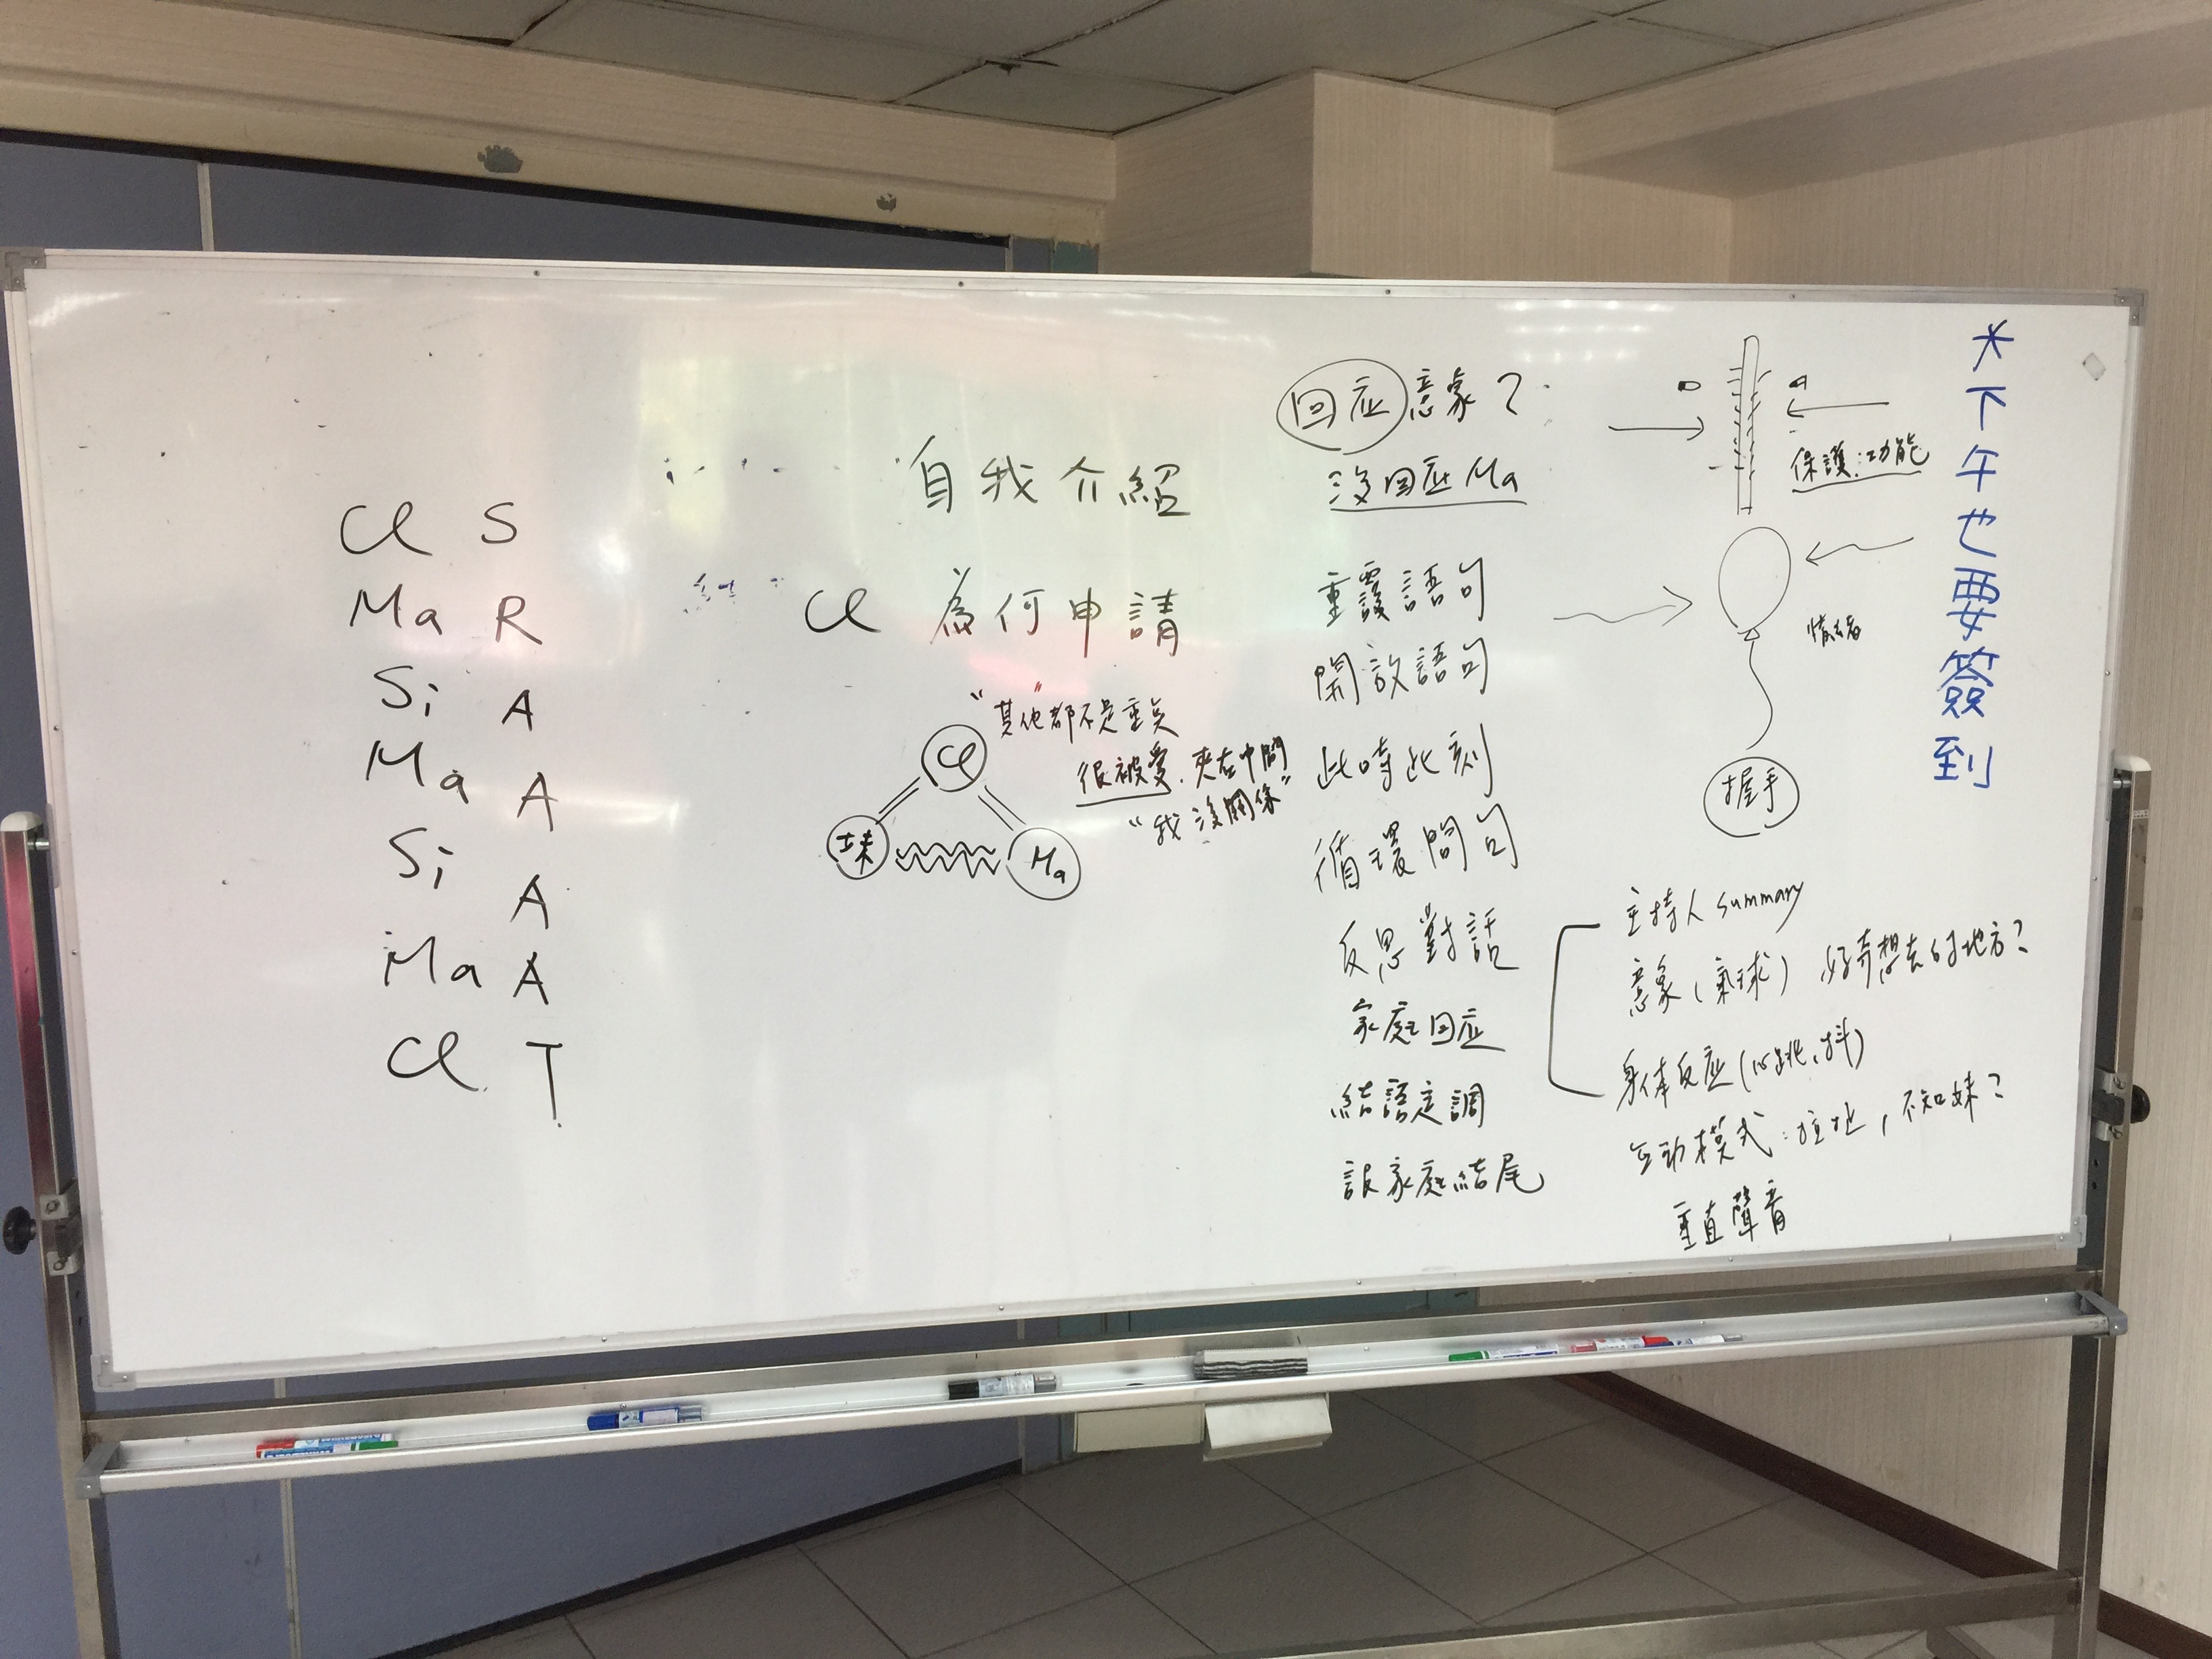 Cl S
Ma R
Si A
Ma A
Si A
Ma A
Cl T
自我介紹
Cl 為何申請
"其他"都不是重點
很被愛、夾在中間
"我沒關係"
Cl
妹
Ma
回应意象?
沒回应Ma
重覆語句
開放語句
此時此刻
循環問句
反思對話
家庭回应
結語定調
謝家庭結尾
保護功能
情緒
握手
主持人 summary
意象(氣球) 好奇想去的地方?
身体反应(心跳、抖)
互動模式:拉扯,不知妹?
垂直聲音
*下午也要簽到